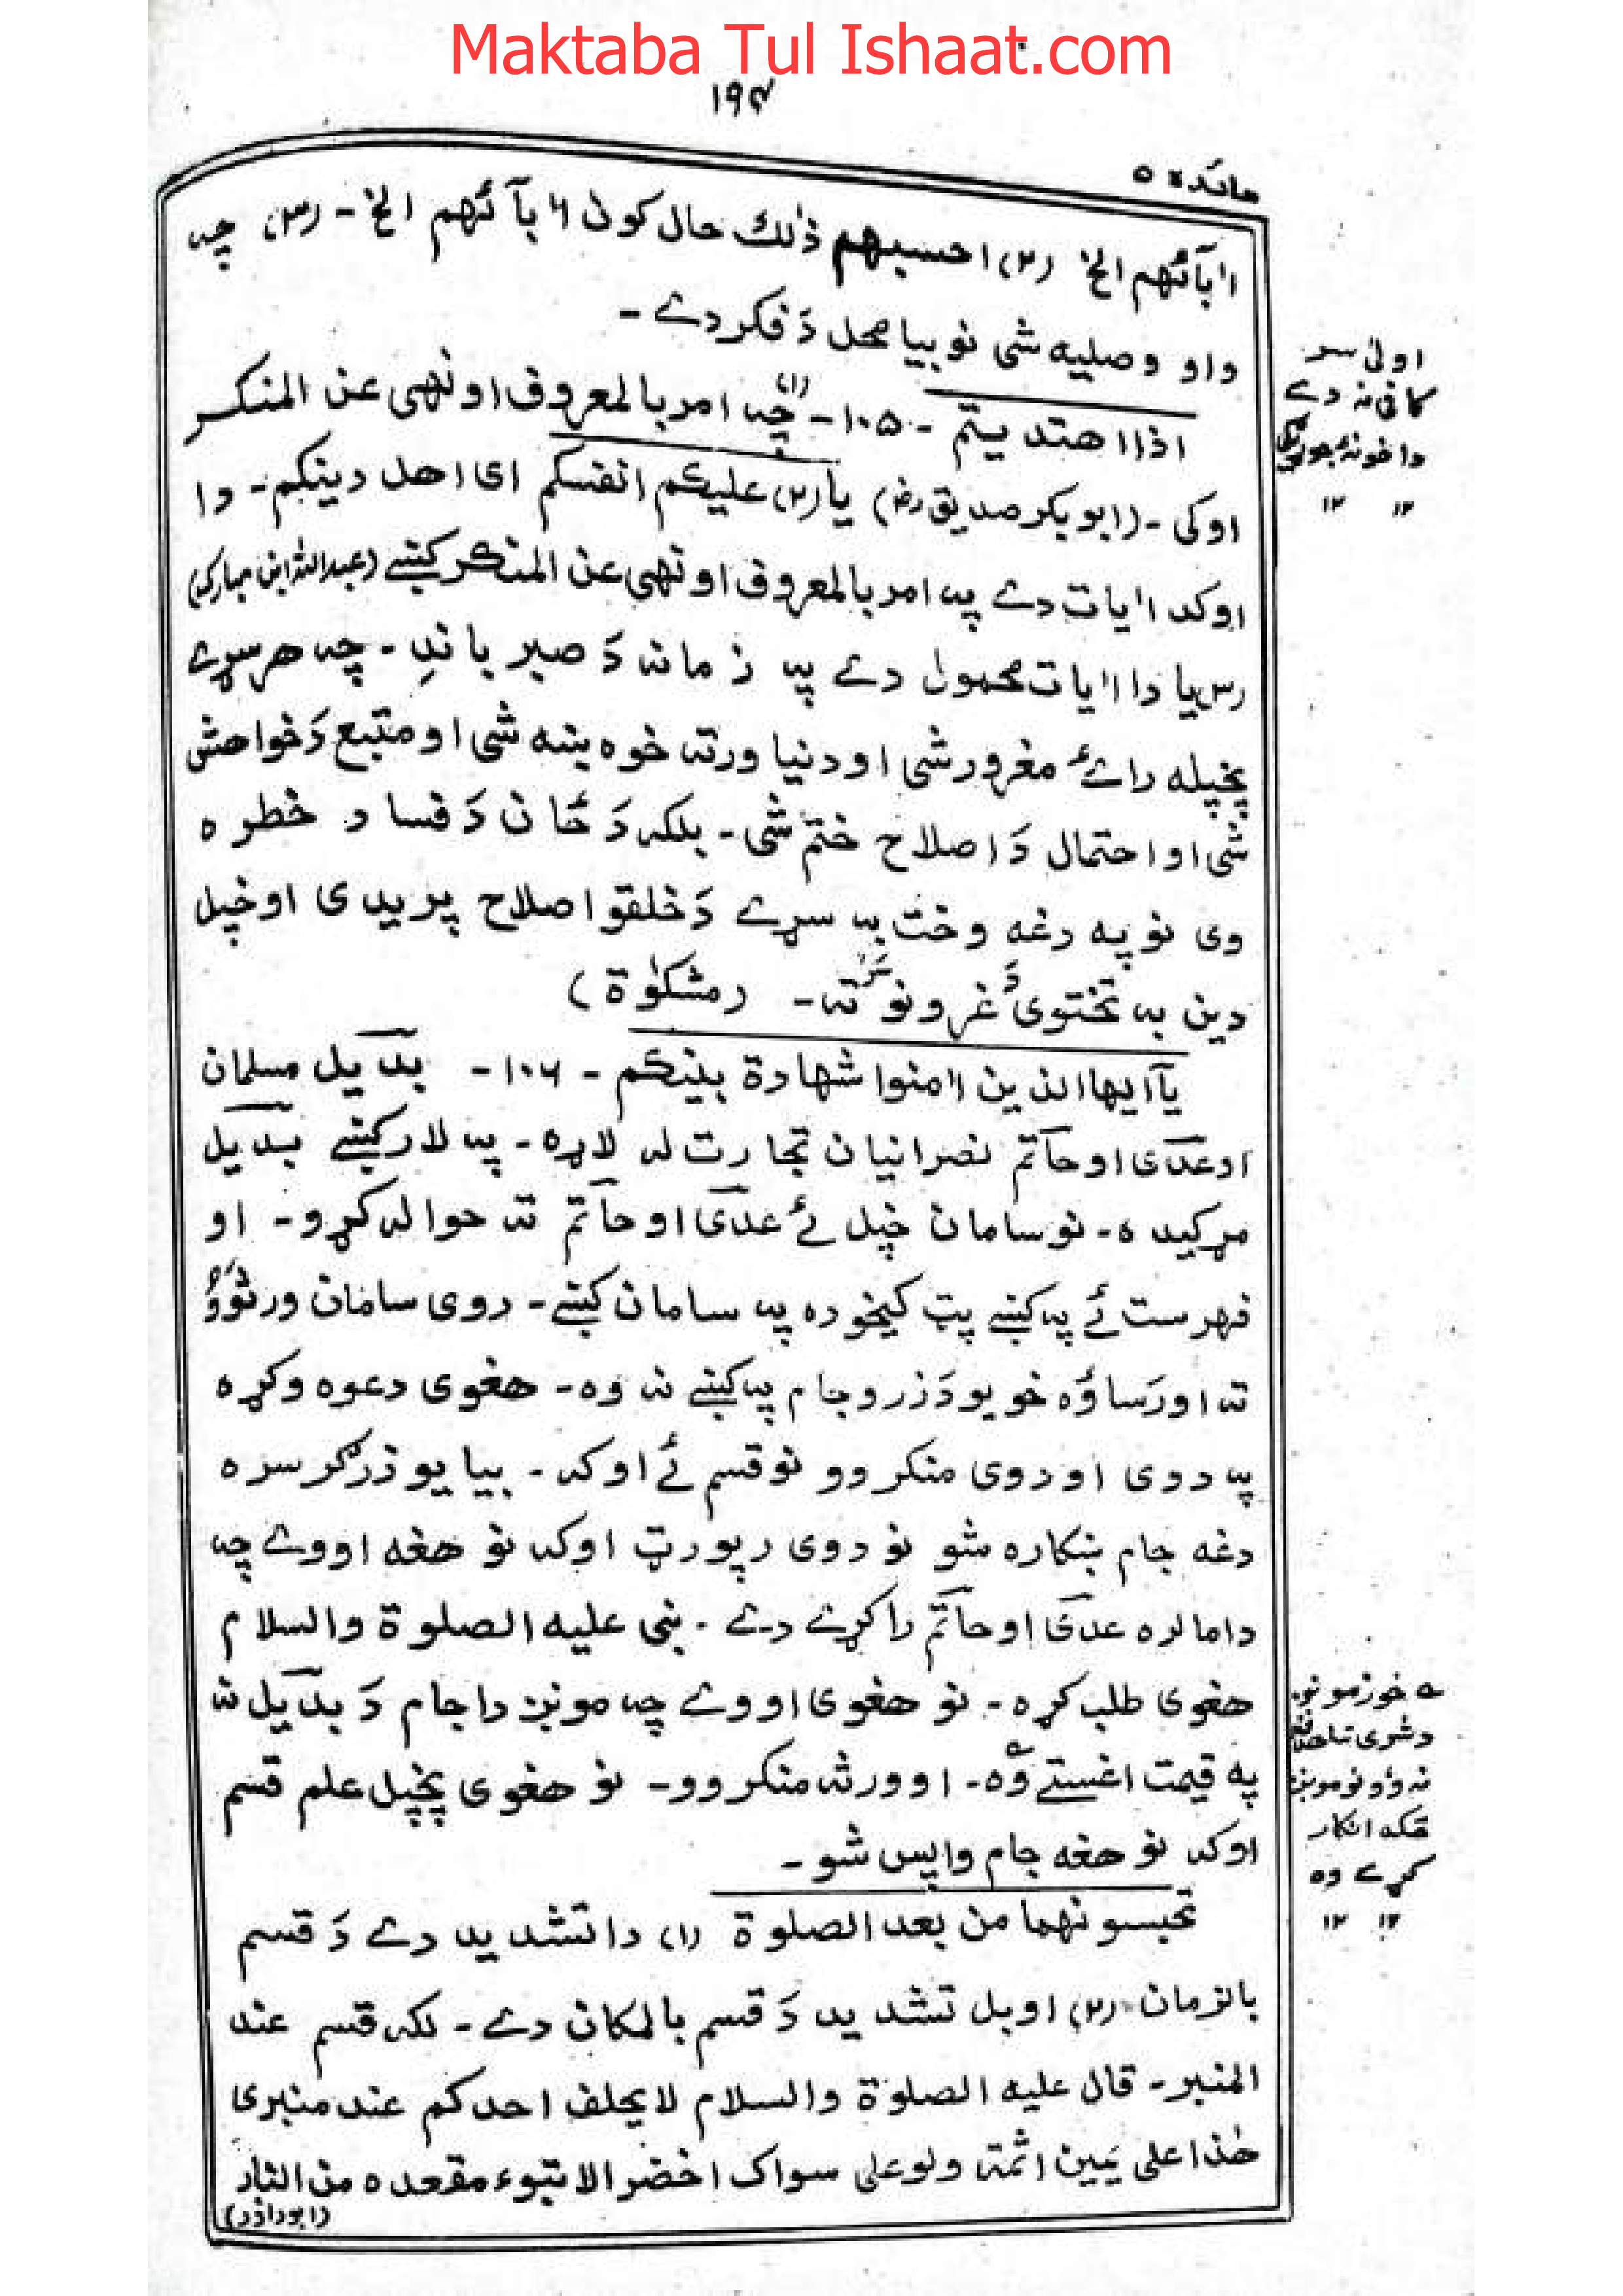 Maktaba Tul Ishaat.com
۱۹۴
مائدة ۵
اٰبآئهم الخ (۲) احسبهم ذٰلك حال کون اٰبآئهم الخ - (۳) چه
واو وصلیه شی نو بیا محل دَ فکر دے -
اذا اهتدیتم - ۱۰۵ - (۱) چه امر بالمعروف او نهی عن المنکر
اوکی - (ابوبکر صدیق رض) یا (۲) علیکم انفسکم ای اهل دینکم - دا
اوکد اٰیات دے په امر بالمعروف او نهی عن المنکر کښے (عبدالله ابن مبارک)
(۳) یا دا اٰیات محمول دے په زمانه دَ صبر باندِ - چه هر سړے
پخپله رائے مغرور شی او دنیا ورته خوه ښه شی او متبع دَ خواهش
شی او احتمال دَ اصلاح ختم شی - بلکه دَ ځان دَ فساد خطره
وی نو په دغه وخت به سړے دَ خلقو اصلاح پریږدی او خپل
دین به تختوی دَ غرونو سر ته - (مشکوٰة)
یآ ایها الذین اٰمنوا شهادة بینکم - ۱۰۶ - بدیل مسلمان
او عدی او حاتم نصرانیان تجارت له لاړه - په لار کښے بدیل
مړ کیده - نو سامان خپل ئے عدی او حاتم ته حواله کړو - او
فهرست ئے په کښے پټ کیخوده په سامان کښے - دوی سامان ورثوؤ
ته اورساؤه خو یو دَ زرو جام په کښے نه وه - هغوی دعوه وکړه
په دوی او دوی منکر وو نو قسم ئے اوکه - بیا یو زرګر سره
دغه جام ښکاره شو نو دوی رپورټ اوکه نو هغه اووے چه
دا ما لره عدی او حاتم راکړے دے - نبی علیه الصلوة والسلام
هغوی طلب کړه - نو هغوی اووے چه مونږ دا جام دَ بدیل نه
په قیمت اغستے وه - او ورثه منکر وو - نو هغوی پخپل علم قسم
اوکه نو هغه جام واپس شو -
تحبسونهما من بعد الصلوة (۱) دا تشدید دے دَ قسم
بالزمان (۲) او بل تشدید دَ قسم بالمکان دے - لکه قسم عند
المنبر - قال علیه الصلوة والسلام لا یحلف احدکم عند منبری
هٰذا علی یمین اثمة ولو علی سواک اخضر الا تبوء مقعده من النار
(ابو داؤد)
اولیٰ سر
کافی نه دے
دا خو نه
۱۲ ۱۲
ے خو زمونږ
د شری
نه وؤ نو مونږ
ځکه انکار
کړے وه
۱۲ ۱۲